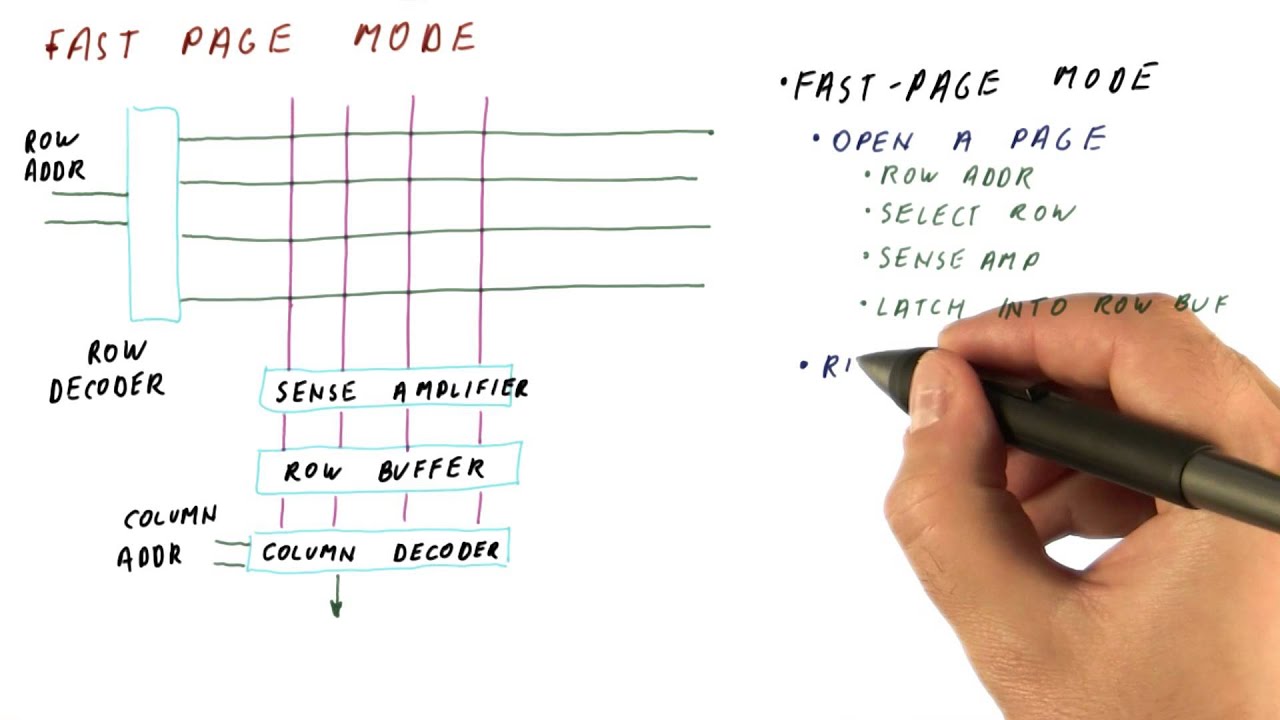 FAST PAGE MODE
ROW
ADDR
ROW
DECODER
SENSE AMPLIFIER
ROW BUFFER
COLUMN
ADDR
COLUMN DECODER
• FAST-PAGE MODE
• OPEN A PAGE
• ROW ADDR
• SELECT ROW
• SENSE AMP
• LATCH INTO ROW BUF